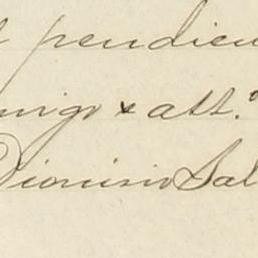 pendien
migo & att.º
Dionisio Sal